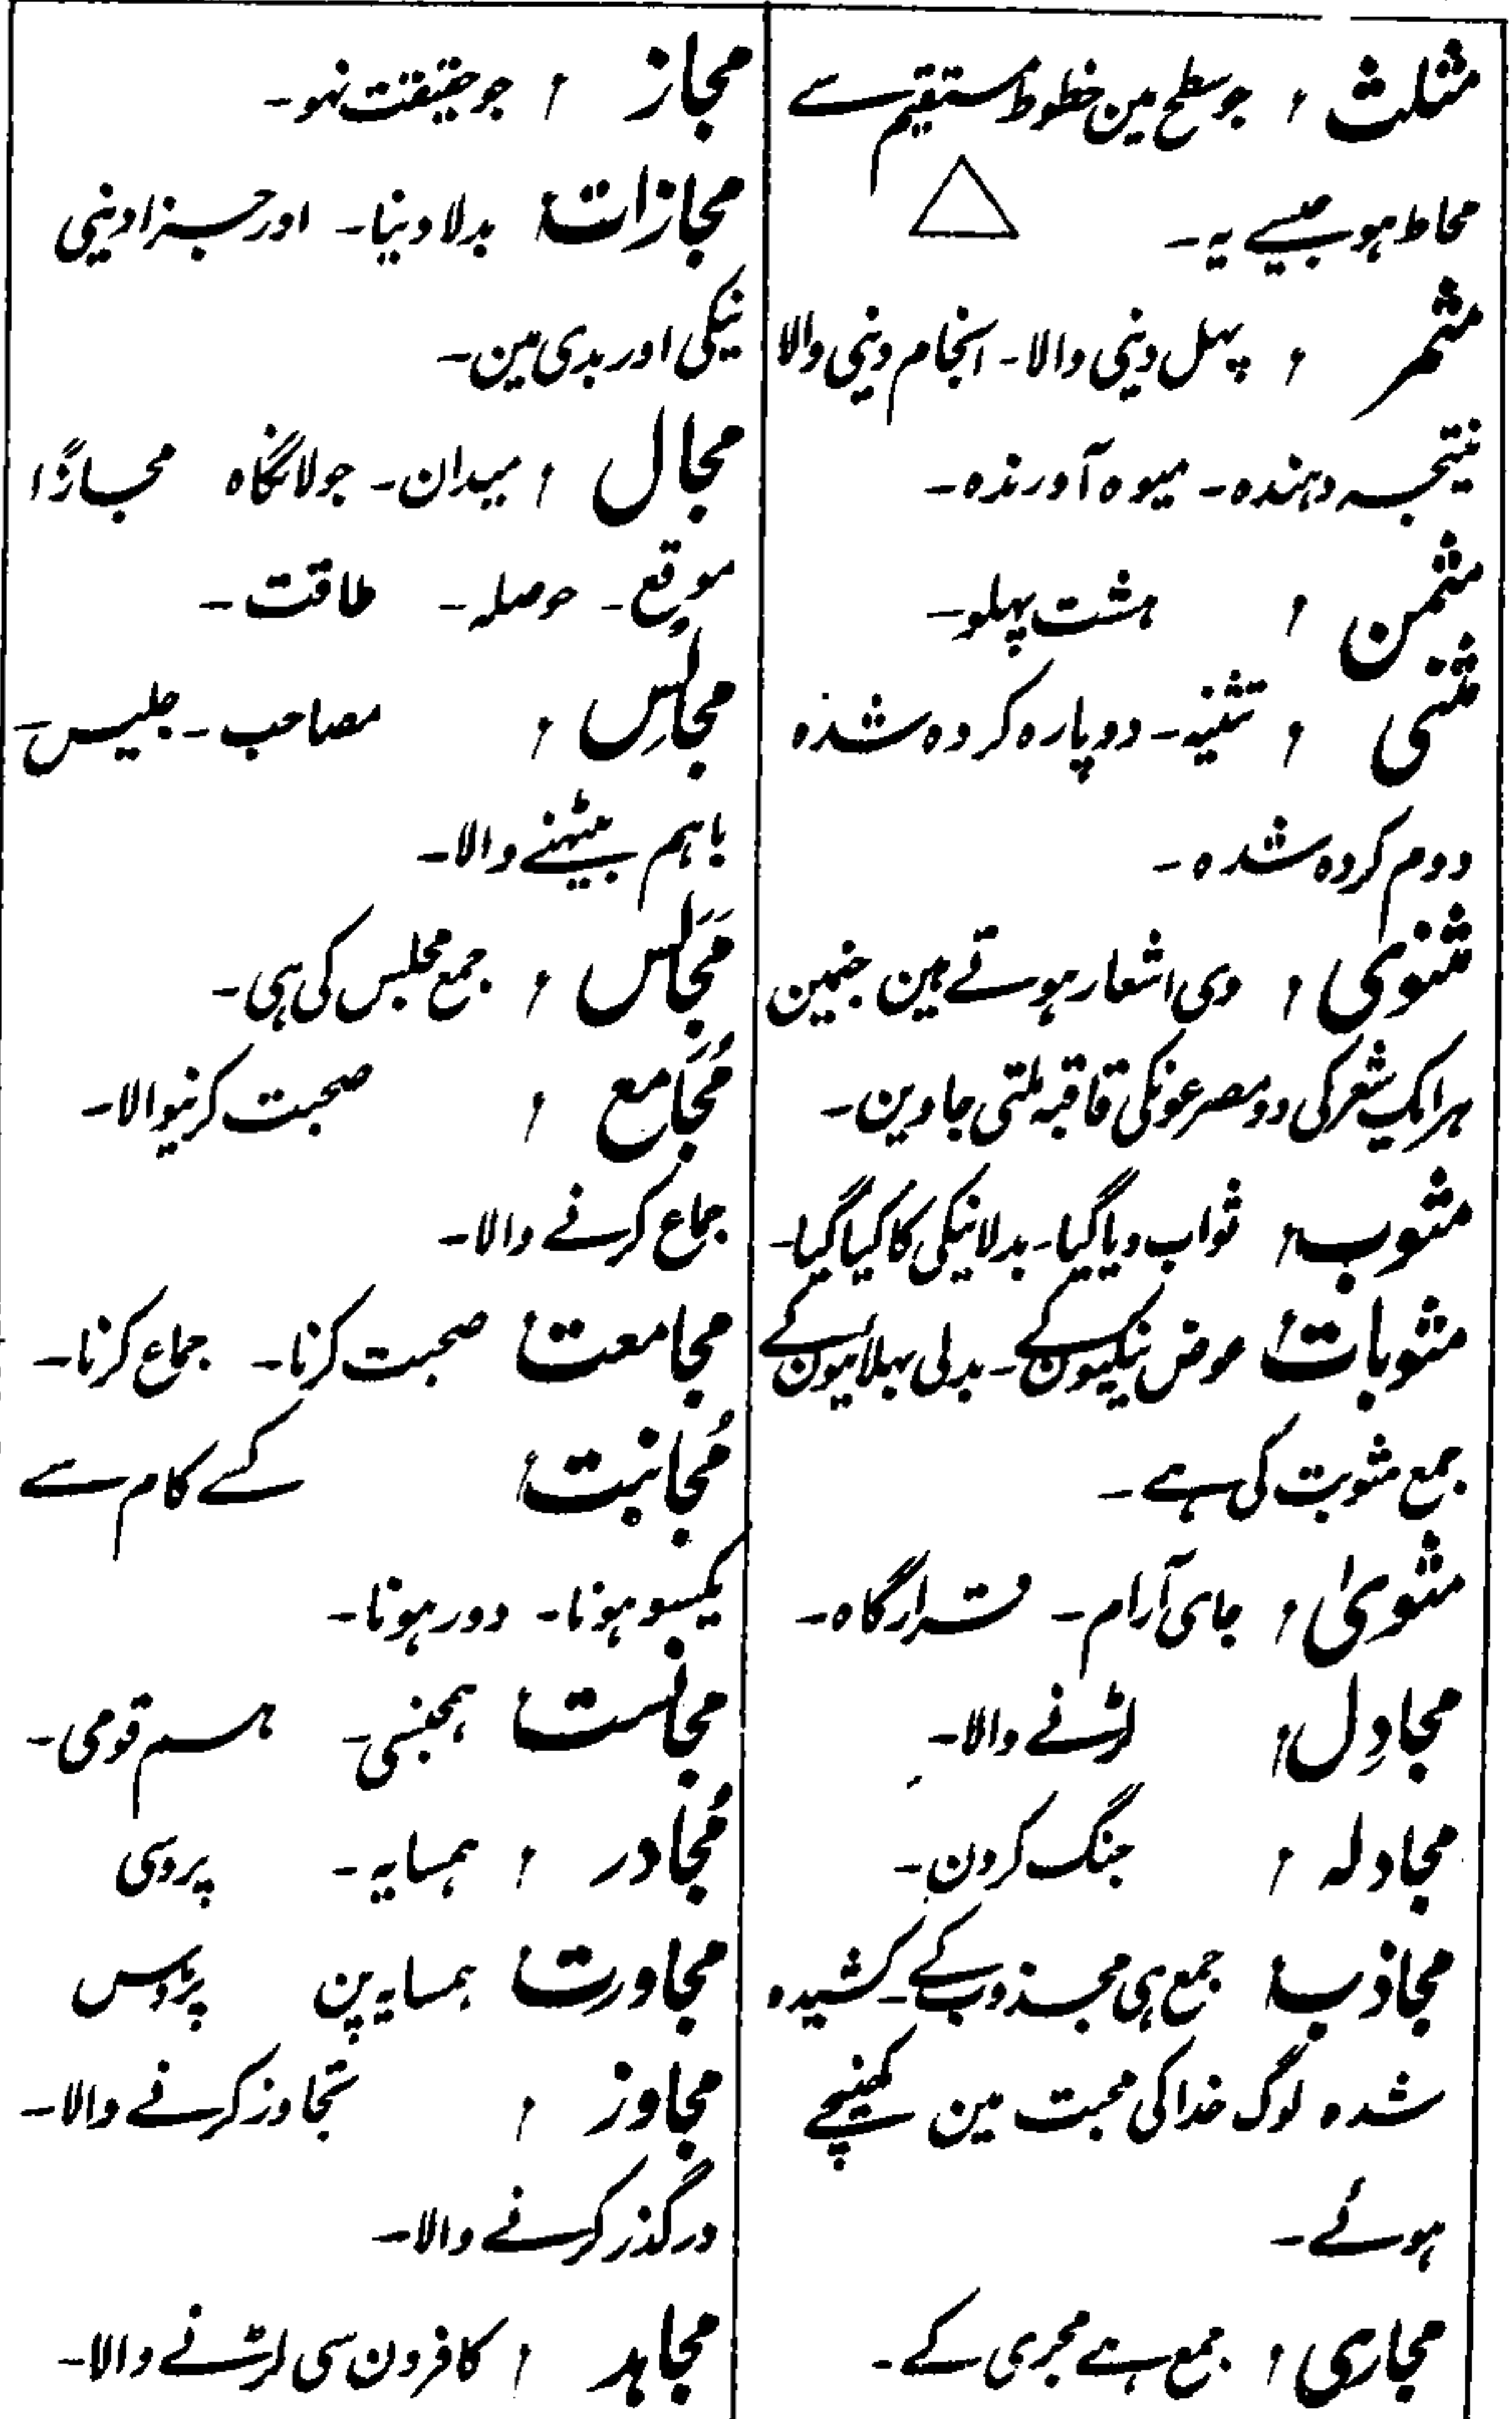 مثلث ، جو سطح مین خطوط مستقیم سے
محاط ہو جیسے یہ۔
مثمر ، پہل دینی والا۔ انجام دینی والا
نتیجہ دہندہ۔ میوہ آورندہ۔
مثمن ، ہشت پہلو۔
مثنی ، تثنیہ۔ دوپارہ کردہ شدہ
دوم کردہ شدہ۔
مثنوی ، وہی اشعار ہوتے ہین جنمین
ہر ایک شعر کی دو مصرعونکی قافیہ ملتی جاوین۔
مثوب ، ثواب دیا گیا۔ بدلا نیکی کا کیا گیا۔
مثوبات ، عوض نیکیون کے۔ بدلی بہلائیون کے
جمع مثوبت کی ہے۔
مثویٰ ، جای آرام۔ قرارگاہ۔
مجادِل ، لڑنے والا۔
مجادلہ ، جنگ کردن۔
مجاذیب ، جمع ہی مجذوب کے۔ کشیدہ
شدہ لوگ خدا کی محبت مین کھینچے
ہوئے۔
مجاری ، جمع ہے مجری کے۔
مجاز ، جو حقیقت نہو۔
مجازات ، بدلا دینا۔ اور جزا دینی
نیکی اور بدی مین۔
مجال ، میدان۔ جولانگاہ مجازًا
موقع۔ حوصلہ۔ طاقت۔
مُجالِس ، مصاحب۔ جلیس۔
باہم بیٹہنے والا۔
مَجَالس ، جمع مجلس کی ہی۔
مُجَامع ، صحبت کرنیوالا۔
جماع کرنے والا۔
مجامعت ، صحبت کرنا۔ جماع کرنا۔
مُجانبت ، کے کام سے
یکسو ہونا۔ دور ہونا۔
مجانست ، ہمجنسی۔ ہم قومی۔
مُجاور ، ہمسایہ۔ پروسی
مجاورت ، ہمسایہ پن پڑوس
مجاوز ، تجاوز کرنے والا۔
درگذر کرنے والا۔
مجاہد ، کافرون سی لڑنے والا۔